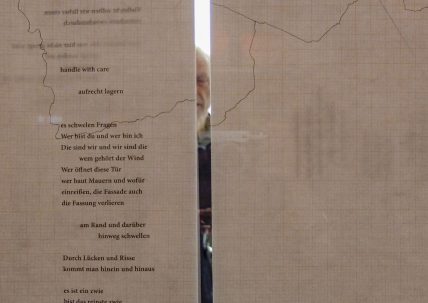 handle with care
aufrecht lagern
es schwelen Fragen
Wer bist du und wer bin ich
Die sind wir und wir sind die
wem gehört der Wind
Wer öffnet diese Tür
wer baut Mauern und wofür
einreißen, die Fassade auch
die Fassung verlieren
am Rand und darüber
hinweg schwellen
Durch Lücken und Risse
kommt man hinein und hinaus
es ist ein zwie
bist das reinste zwie